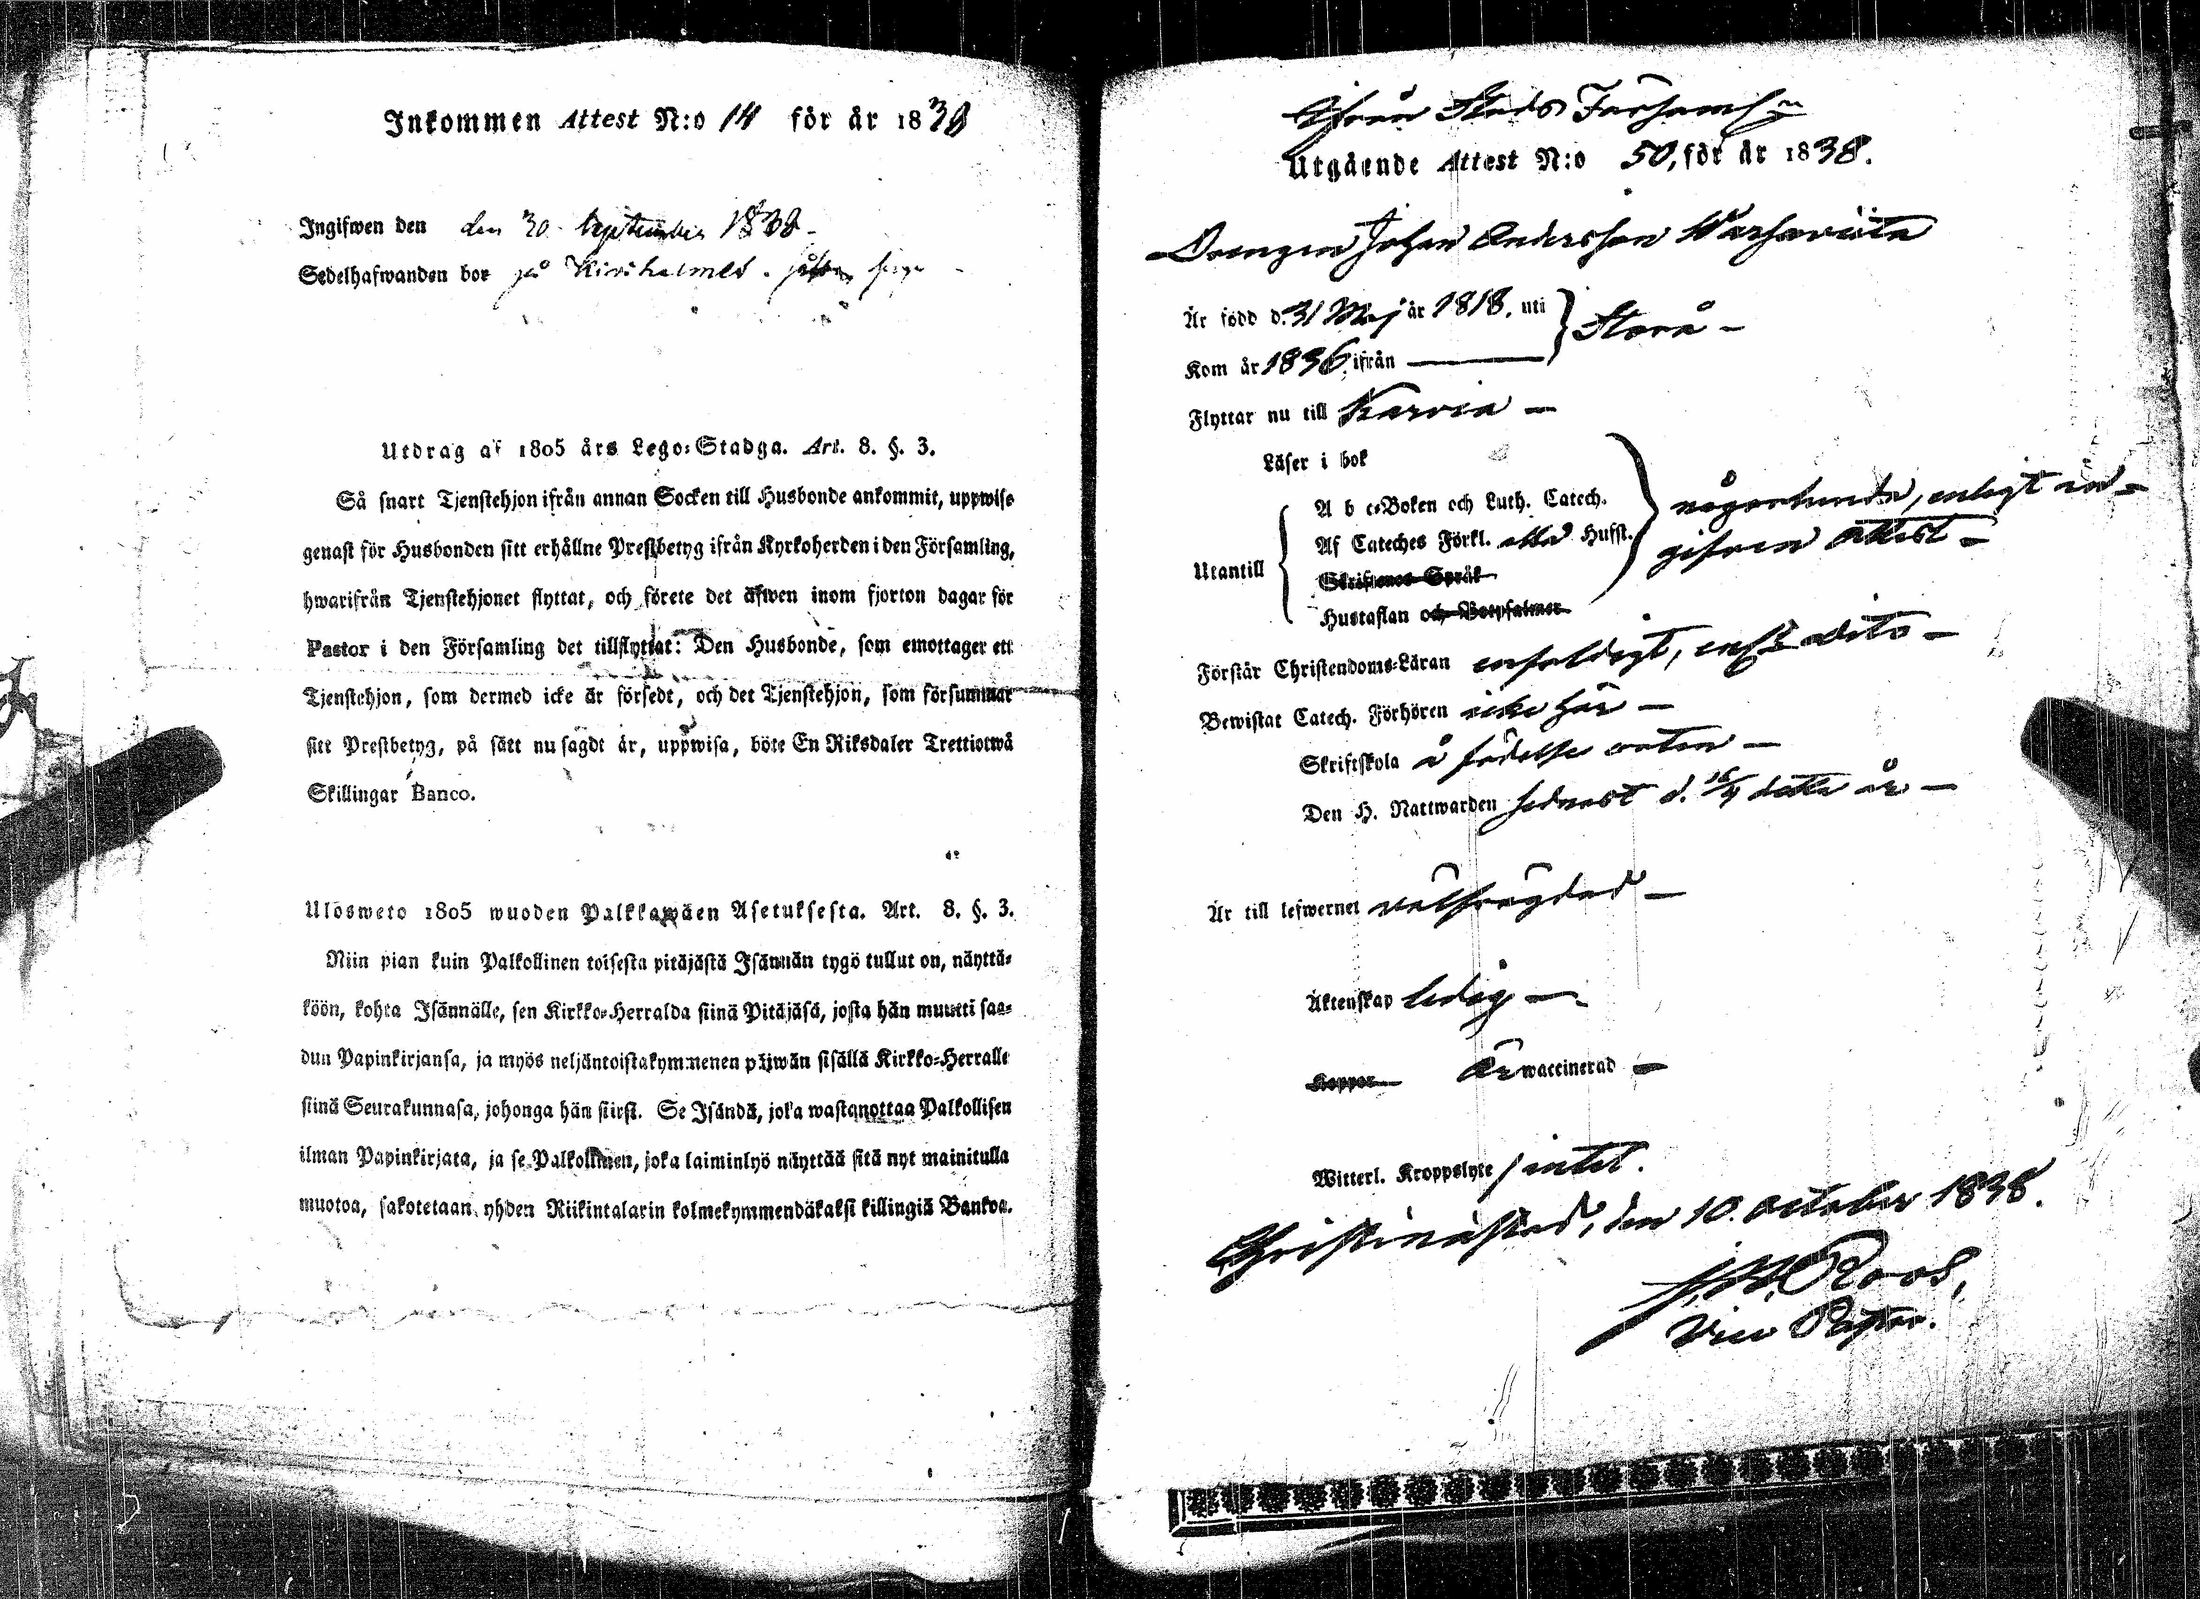 Inkommen Attest N:o 14 för år 1838
Ingifwen den den 30 September 1838 -
Sedelhafwanden bor på
Utdrag af 1805 års Lego-Stadga. Art. 8. §. 3.
Så snart Tjenstehjon ifrån annan Socken till Husbonde ankommit, uppwise
genast för Husbonden sitt erhållne Prestbetyg ifrån Kyrkoherden i den Församling,
hwarifrån Tjenstehjonet flyttat, och förete det äfwen inom fjorton dagar för
Pastor i den Församling det tillflyttat: Den Husbonde, som emottager ett
Tjenstehjon, som dermed icke är försedt, och det Tjenstehjon, som försummar
sitt Prestbetyg, på sätt nu sagdt är, uppwisa, böte En Riksdaler Trettiotwå
Skillingar Banco.
Ulosweto 1805 wuoden Palkkawäen Asetuksesta. Art. 8. §. 3.
Niin pian kuin Palkollinen toisesta pitäjästä Isännän tygö tullut on, näyttä-
köön, kohta Isännälle, sen Kirkko-Herralda siinä Pitäjäsä, josta hän muutti saa-
dun Papinkirjansa, ja myös neljäntoistakymmenen päiwän sisällä Kirkko-Herralle
siinä Seurakunnasa, johonga hän siirst. Se Isändä, joka wastanottaa Palkollisen
ilman Papinkirjata, ja se Palkollinen, joka laiminlyö näyttää sitä nyt mainitulla
muotoa, sakotetaan yhden Riikintalarin kolmekymmendäkaksi killingiä Bankoa.
Ifrån Stads Församl:n
Utgående Attest N:o 50, för år 1838.
Drengen Johan Andersson
Är född d. 31 Maj år 1818. uti } Storå -
Kom år 1836. ifrån —
Flyttar nu till Karvia -
Läser i bok
Utantill { A b c-Boken och Luth. Catech. } någorlunda, enligt in-
Af Cateches Förkl. alla Hufst. gifven attest -
Skriftenes Språk
Hustaflan och Botpsalmer
Förstår Christendoms-Läran enfaldigt, enl. dito -
Bewistat Catech. Förhören icke här -
Skriftskola å födelse orten -
Den H. Nattwarden sednast d. detta år -
Är till lefwernet välfrägdad -
Äktenskap ledig -
Koppor Är waccinerad -
Witterl. Kroppslyte intet.
Christinæstad, den 10. October 1838.
Roos,
Vice Pastor.